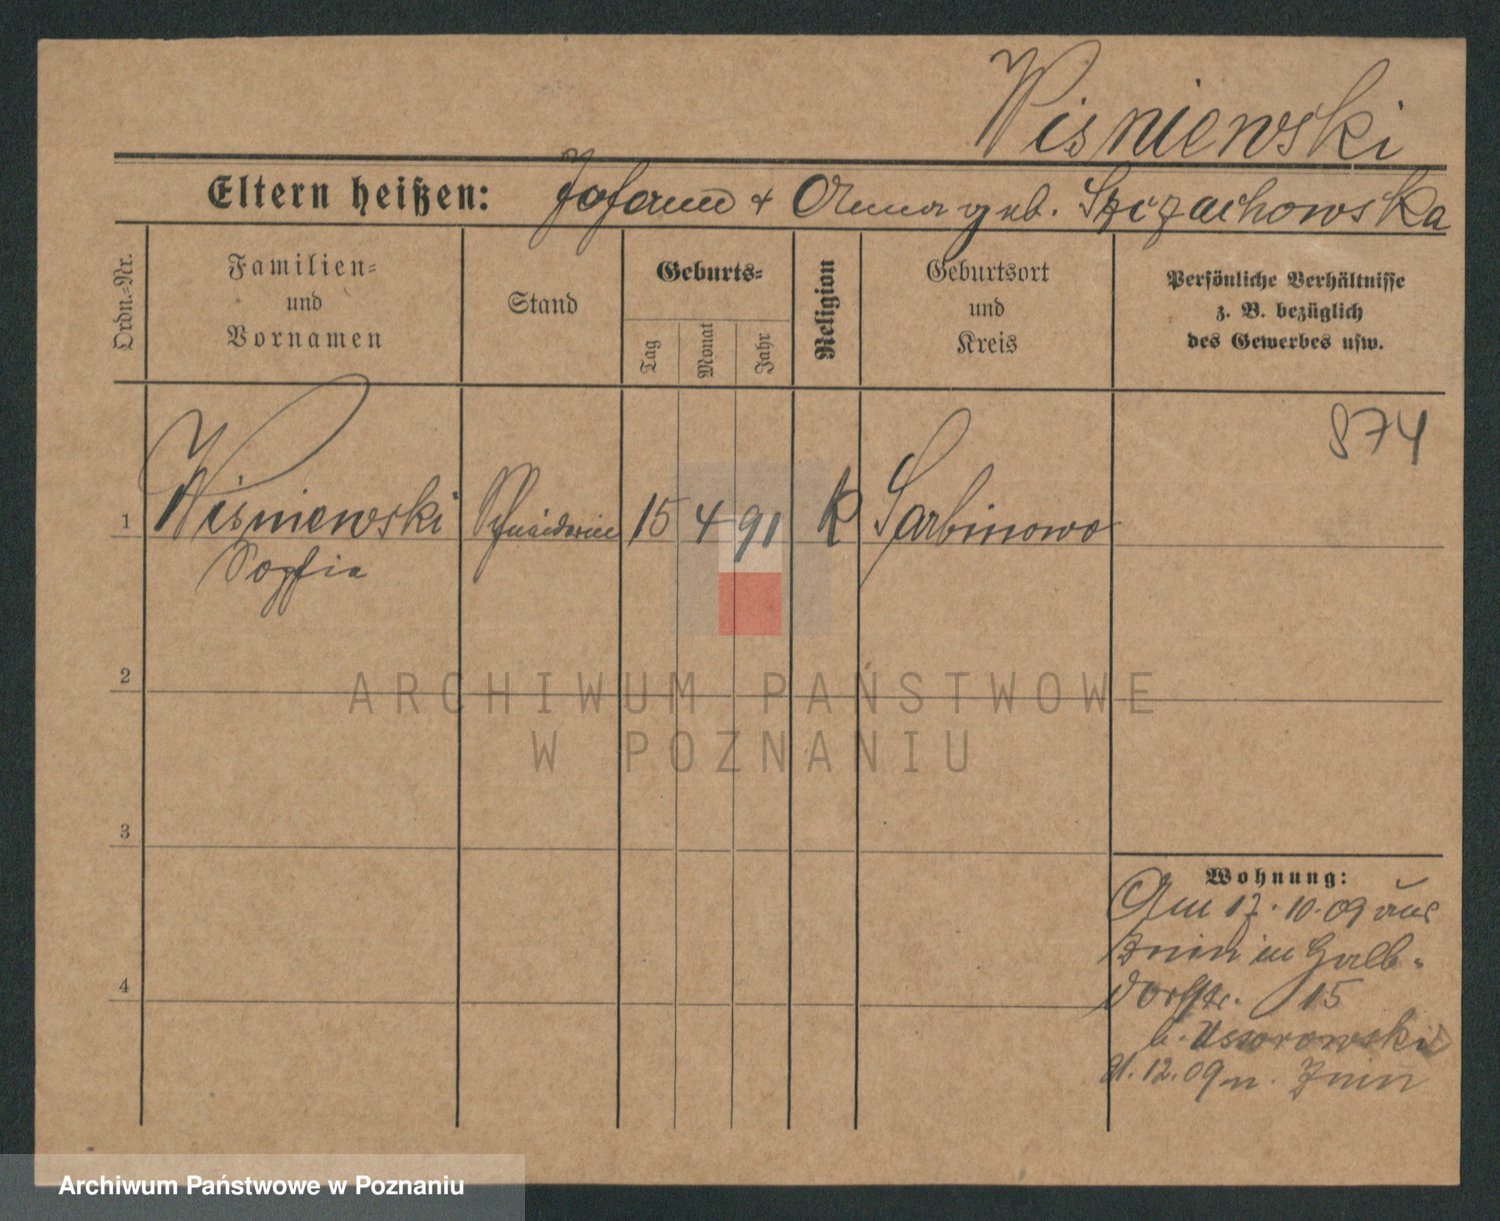 Wisniewski
Eltern heißen: Johann + Anna geb. Szczachowska
Ordn.-Nr.
Familien-
und
Vornamen
Stand
Geburts-
Tag
Monat
Jahr
Religion
Geburtsort
und
Kreis
Persönliche Verhältnisse
z. B. bezüglich
des Gewerbes usw.
874
1 Wisniewski Schneiderin 15 4 91 k Sarbinowo
Sophia
2
ARCHIWUM PAŃSTWOWE
W POZNANIU
3
Wohnung:
Am 17.10.09 aus
Znin in Halb-
dorfstr. 15
b.
21.12.09 n. Znin
4
Archiwum Państwowe w Poznaniu